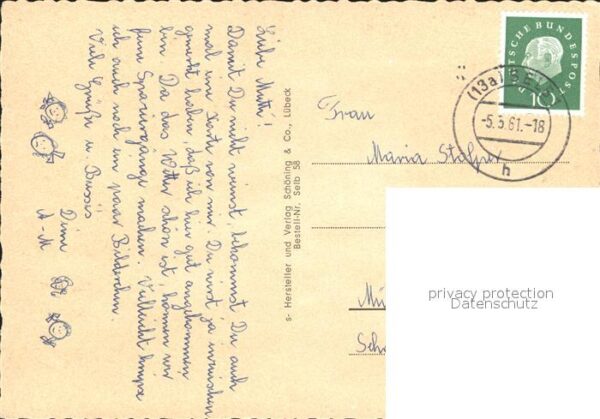 Liebe Mutti!
Damit Du nicht weinst, bekommst Du auch
mal ne Karte von mir. Du wirst ja inzwischen
gemerkt haben, daß ich hier gut angekommen
bin. Da das Wetter schön ist, können wir
feine Spaziergänge machen. Vielleicht knipse
ich auch noch ein paar Bilderchen.
Viele Grüße u. Bussis
Deine
A-M
s- Hersteller und Verlag Schöning & Co., Lübeck
Bestell-Nr. Selb 58
DEUTSCHE BUNDESPOST
10
(13a) SELB
-5.3.61.-18
h
Frau
Maria
Mü
Sch
privacy protection
Datenschutz